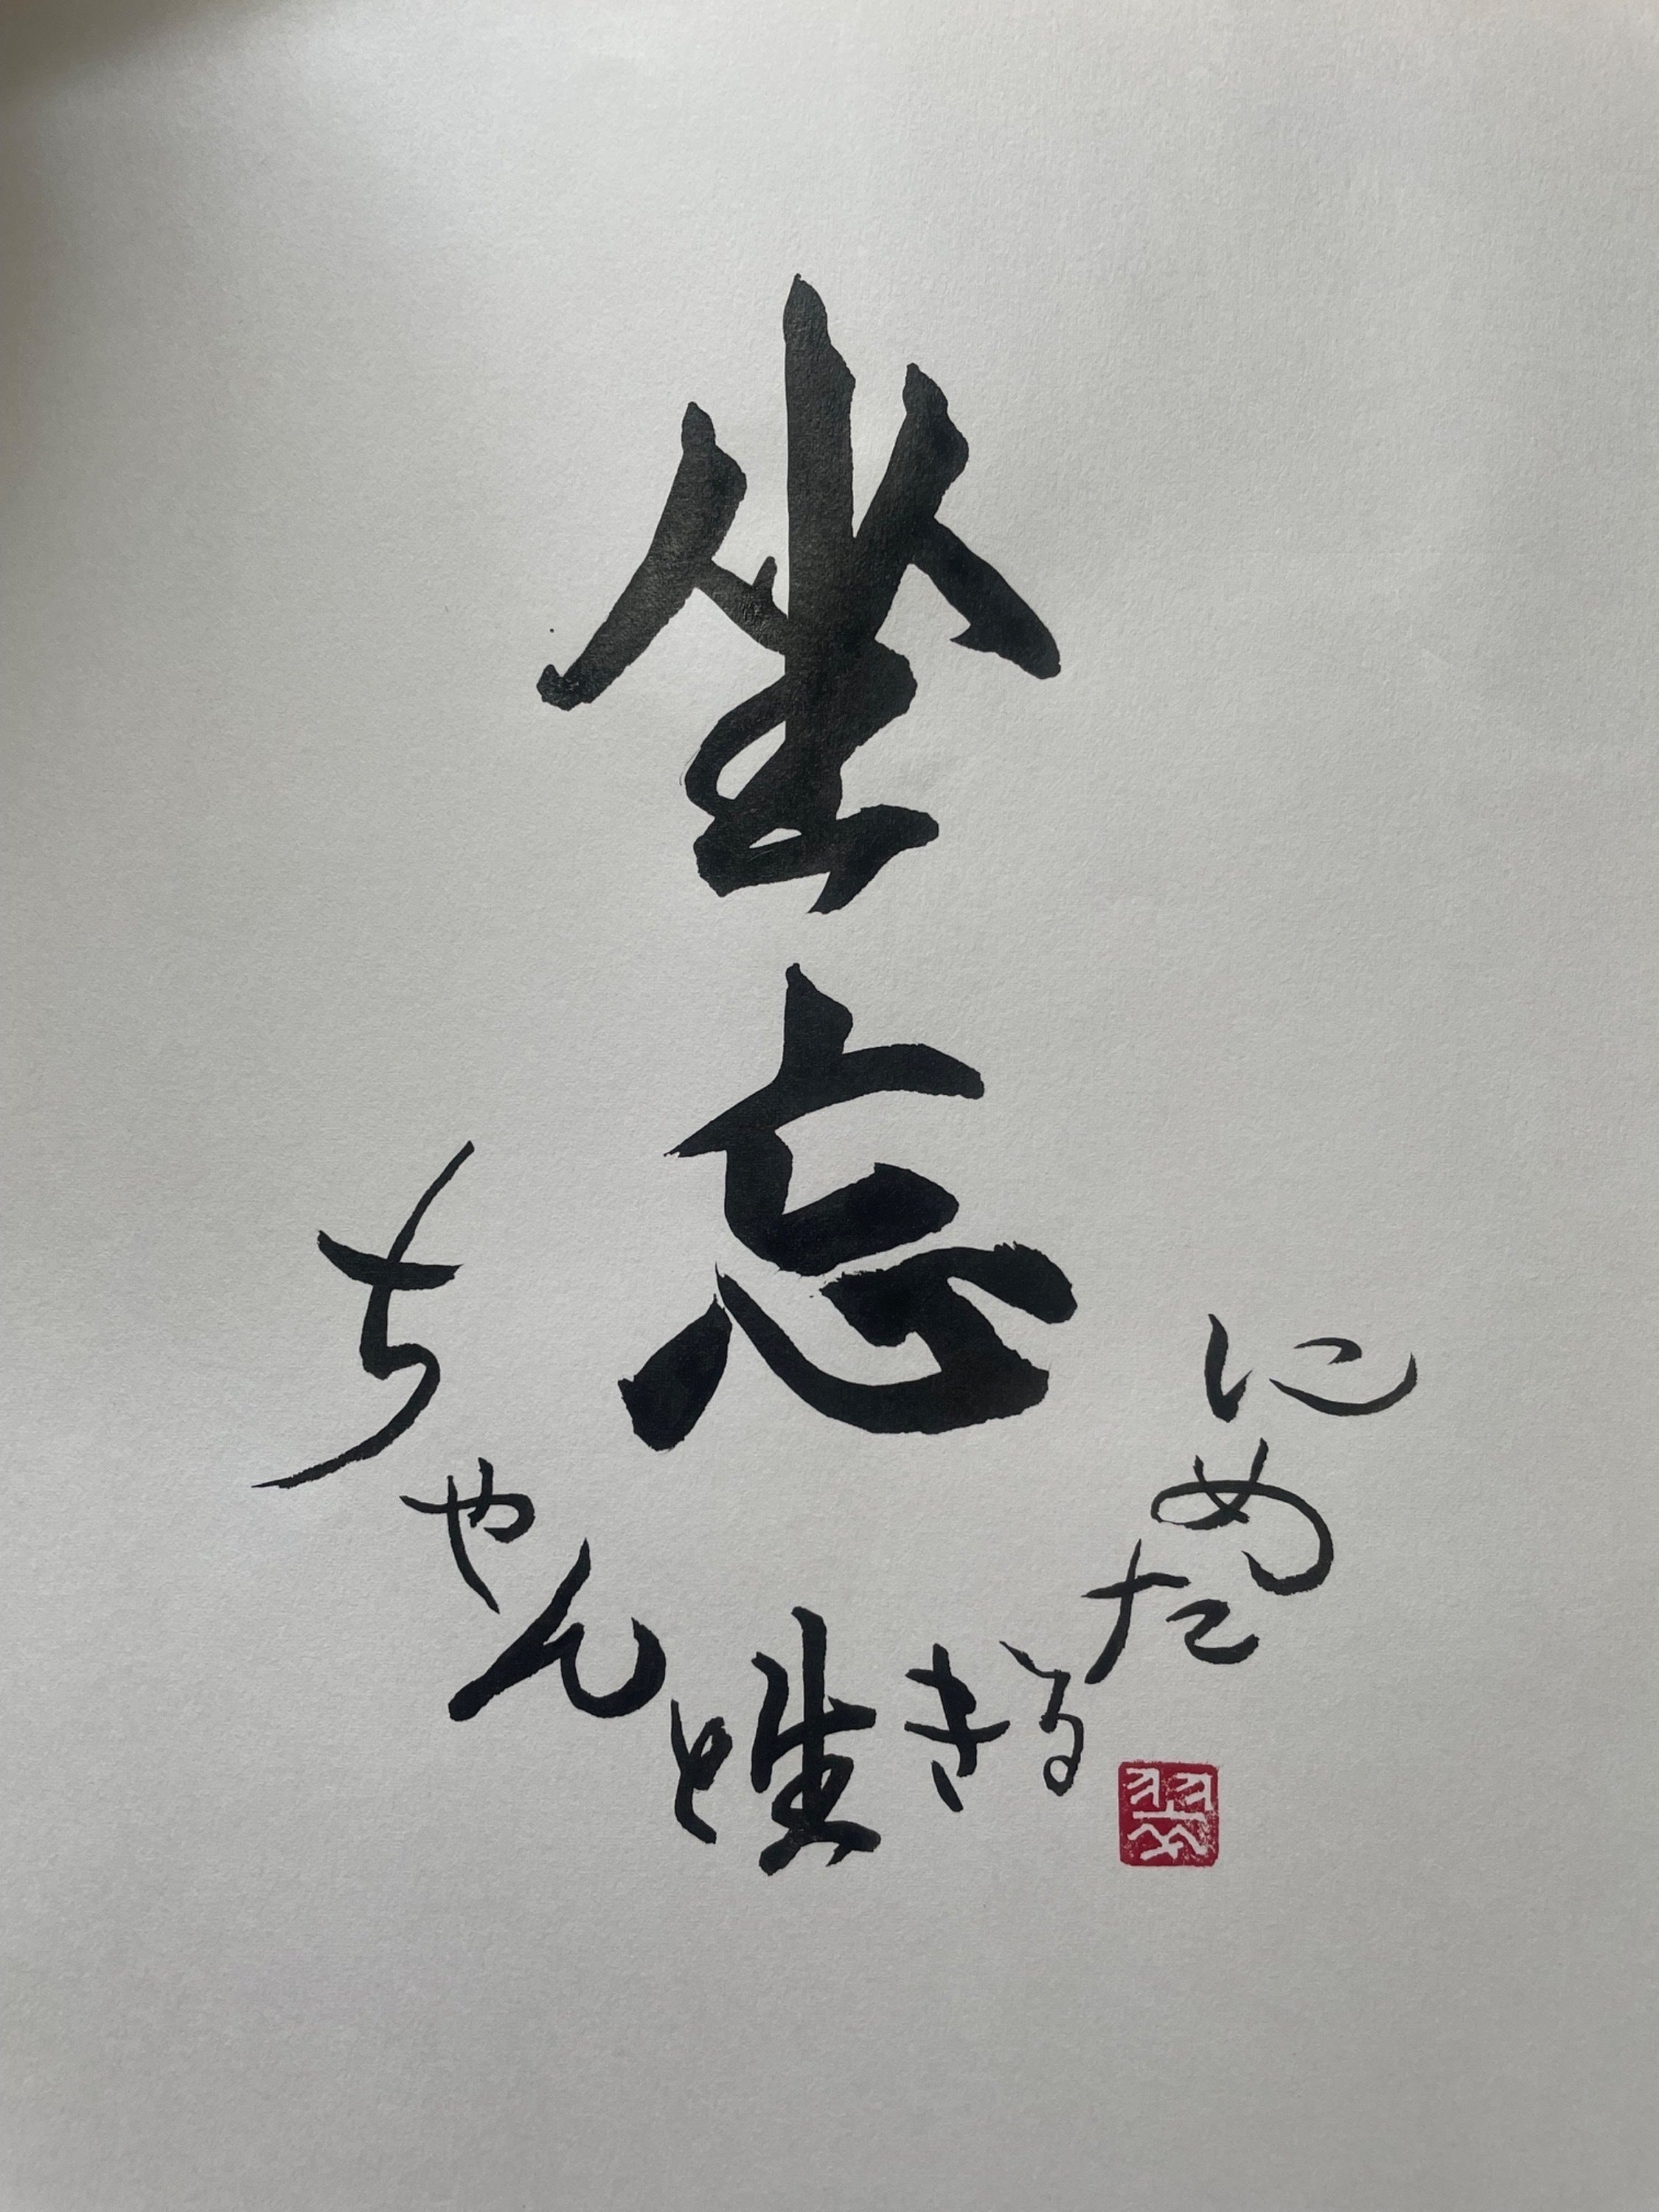 坐忘
ちゃんと生きるために
翠